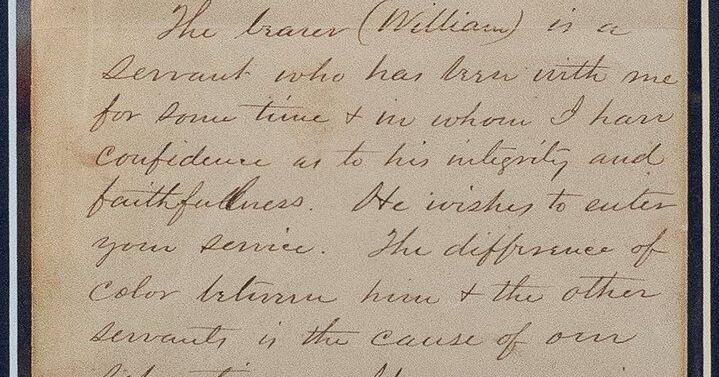 The bearer (William) is a
servant who has been with me
for some time & in whom I have
confidence as to his integrity and
faithfullness. He wishes to enter
your service. The difference of
color between him & the other
servants is the cause of our